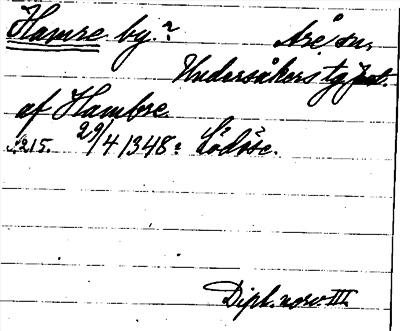 Hamre by? Åre sn.
Undersåkers tg
af Hambre
s215. 29/4 1348. Lödöse.
Dipl. norv. III.